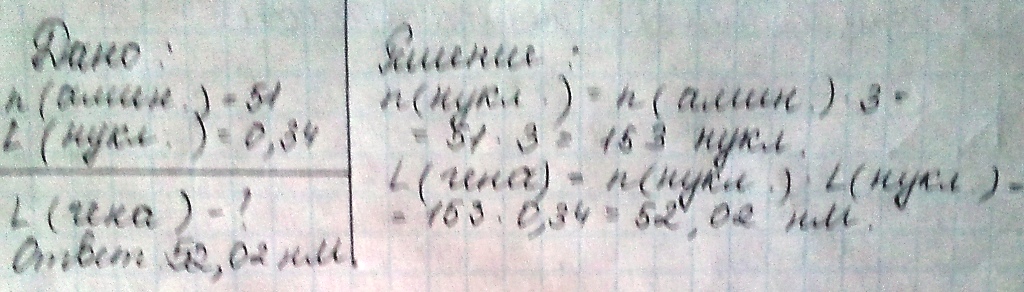 Дано :
n (амин.) = 51
L (нукл.) = 0,34
L (гена) - ?
Ответ 52,02 нм
Решение :
n(нукл.) = n(амин.) · 3 =
= 51 · 3 = 153 нукл.
L(гена) = n(нукл.) · L(нукл.) =
= 153 · 0,34 = 52,02 нм.